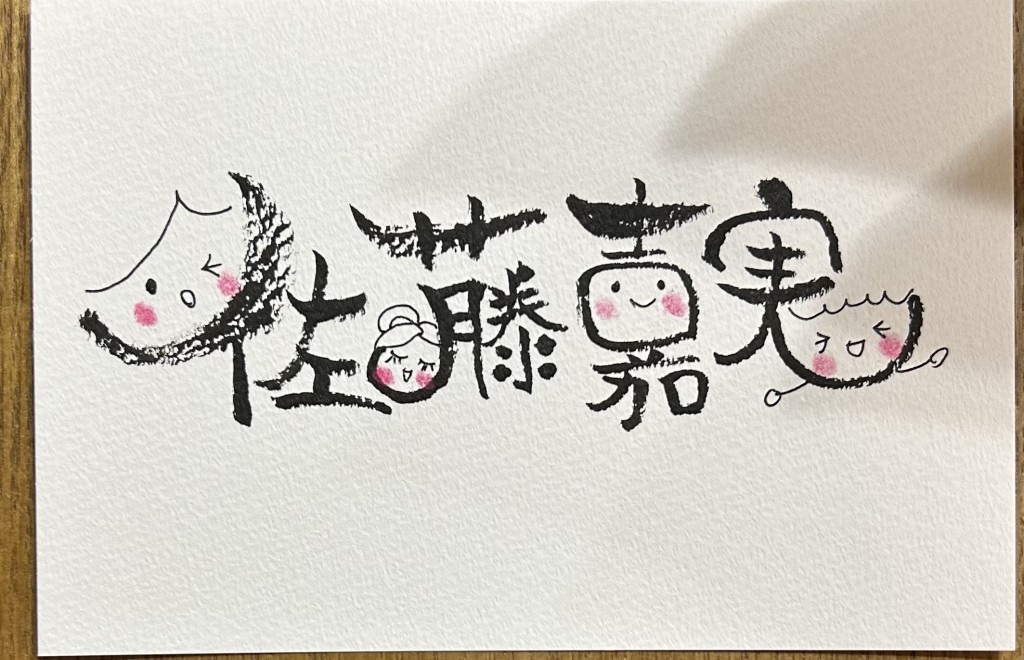 佐藤嘉実